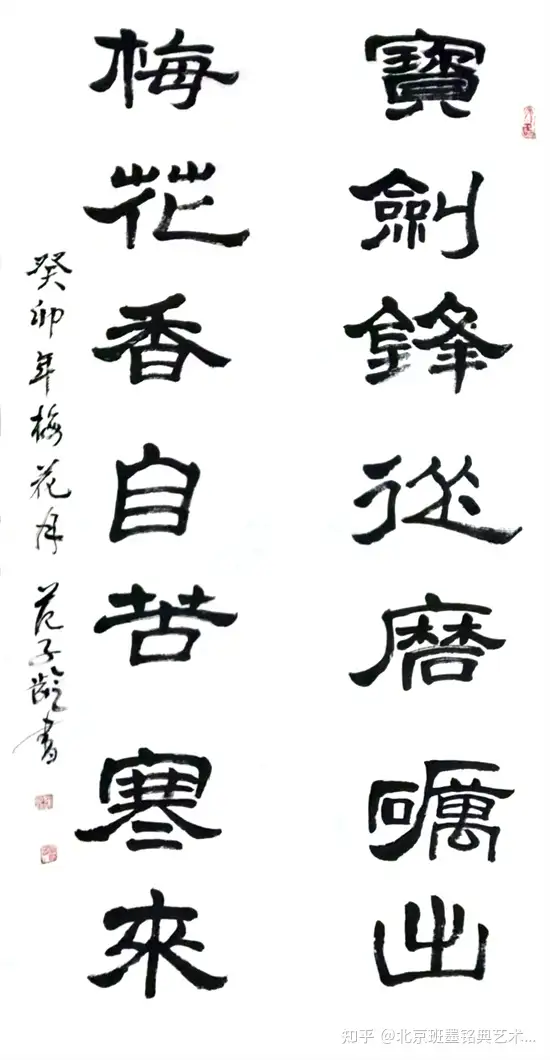 寶劍鋒從磨礪出
梅花香自苦寒來
癸卯年梅花月 范子龄書
知乎 @北京班墨铭典艺术...